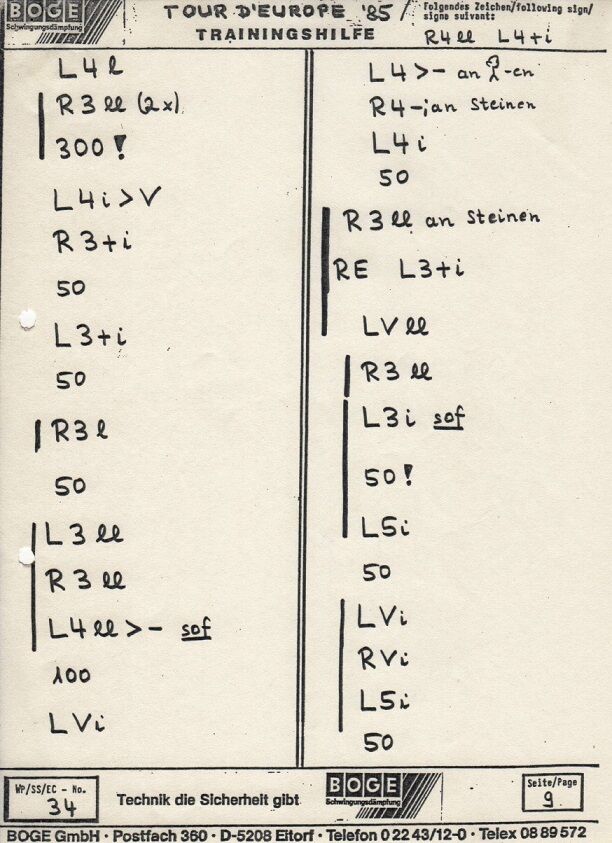 BOGE
Schwingungsdämpfung
TOUR D'EUROPE '85
TRAININGSHILFE
Folgendes Zeichen/following sign/
signe suivant:
R4ll L4+i
L4l
R3ll (2x)
300!
L4i>V
R3+i
50
L3+i
50
R3l
50
L3ll
R3ll
L4ll>- sof
100
LVi
L4>- an -en
R4-; an Steinen
L4i
50
R3ll an Steinen
RE L3+i
LVll
R3ll
L3i sof
50!
L5i
50
LVi
RVi
L5i
50
WP/SS/EC - No.
34
Technik die Sicherheit gibt
BOGE
Schwingungsdämpfung
Seite/Page
9
BOGE GmbH · Postfach 360 · D-5208 Eitorf · Telefon 0 22 43/12-0 · Telex 08 89 572